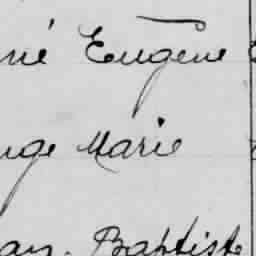 né Eugène
nge Marie
an. Baptiste